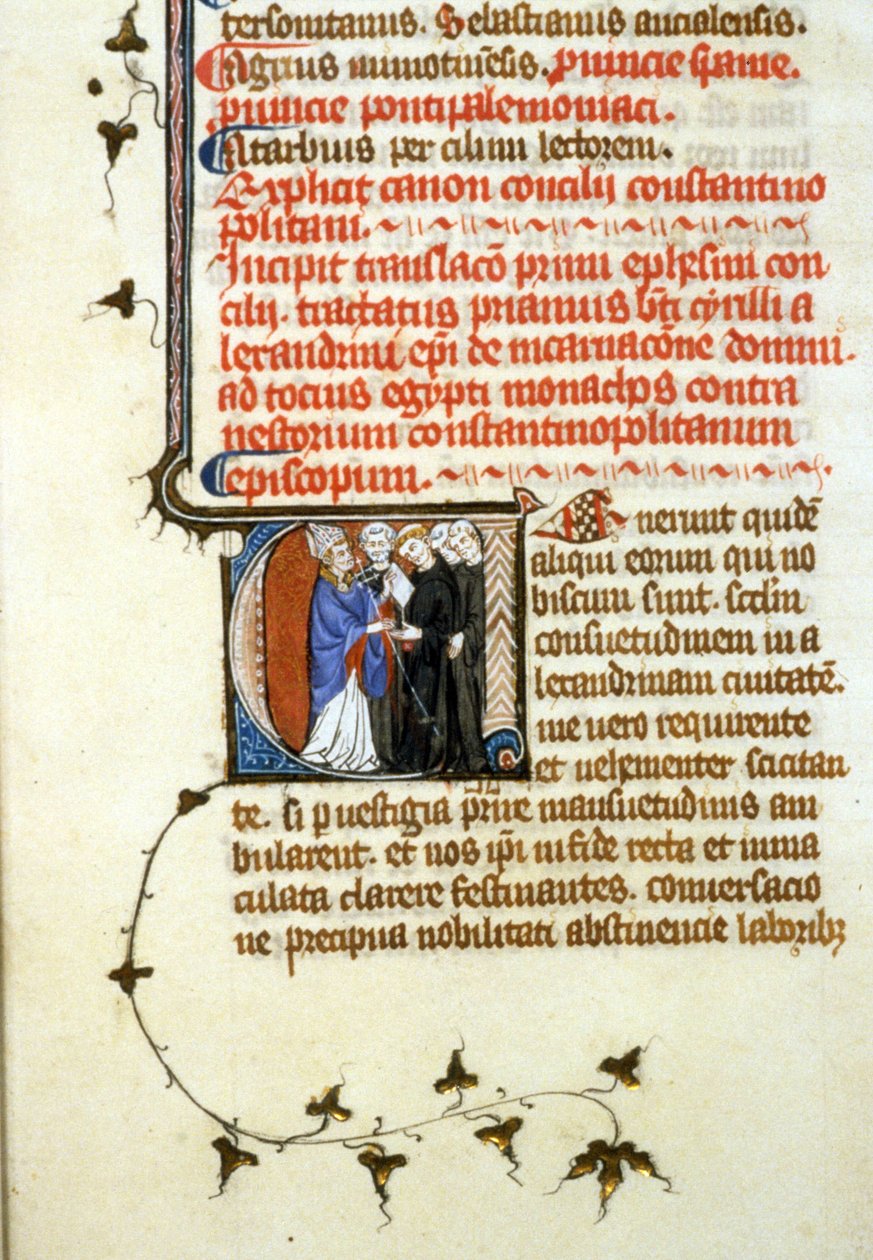 tersoutanus. Sebastianus ancialensis.
Agrius inmotinēsis. Prouincie spanie.
prouincie ponti palemoniaci.
Atarbius per cilum lectorem.
Explicit canon concilij constantino
politani.
Incipit translacō primi ephesini con
cilij. tractatus primus bīti cyrilli a
lexandrini epī de incarnacōne domini.
ad tocius egypti monachos contra
nestorium constantinopolitanum
episcopum.
Uenerunt quidē
aliqui eorum qui no
biscum sunt. scdm
consuetudinem in a
lexandrinam ciuitatē.
me uero requirente
et uehementer scicitan
te. si p uestigia prīe mansuetudinis am
bularent. et uos ipī in fide recta et inma
culata clarere festinantes. conuersacio
ne precipua nobilitati abstinencie laboribꝫ